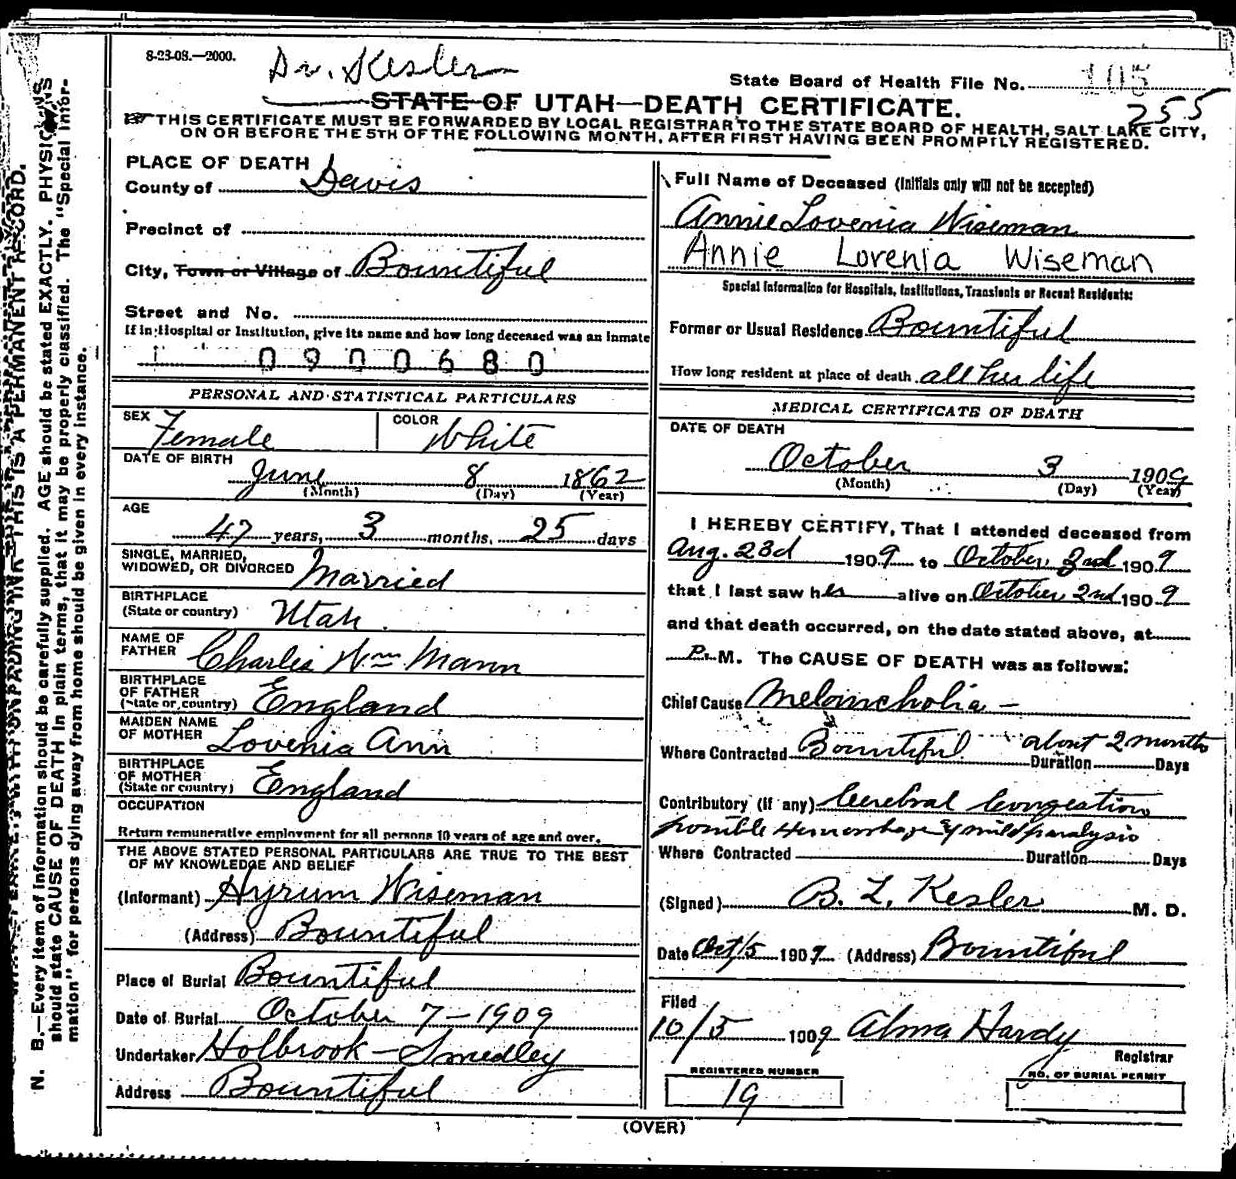 8-23-08.—2000.
Dr. Kesler
State Board of Health File No. 105
255
STATE OF UTAH—DEATH CERTIFICATE.
THIS CERTIFICATE MUST BE FORWARDED BY LOCAL REGISTRAR TO THE STATE BOARD OF HEALTH, SALT LAKE CITY,
ON OR BEFORE THE 5TH OF THE FOLLOWING MONTH, AFTER FIRST HAVING BEEN PROMPTLY REGISTERED.
N. B.—Every item of information should be carefully supplied. AGE should be stated EXACTLY. PHYSICIANS
should state CAUSE OF DEATH in plain terms, that it may be properly classified. The "Special Infor-
mation" for persons dying away from home should be given in every instance.
THIS IS A PERMANENT RECORD.
PLACE OF DEATH
County of Davis
Precinct of
City, Town or Village of Bountiful
Street and No.
If in Hospital or Institution, give its name and how long deceased was an inmate
0900680
PERSONAL AND STATISTICAL PARTICULARS
SEX Female COLOR White
DATE OF BIRTH June 8 1862
(Month) (Day) (Year)
AGE
47 years, 3 months, 25 days
SINGLE, MARRIED,
WIDOWED, OR DIVORCED Married
BIRTHPLACE
(State or country) Utah.
NAME OF
FATHER Charlis Wm Mann
BIRTHPLACE
OF FATHER
(State or country) England
MAIDEN NAME
OF MOTHER Lovenia Ann
BIRTHPLACE
OF MOTHER
(State or country) England
OCCUPATION
Return remunerative employment for all persons 10 years of age and over.
THE ABOVE STATED PERSONAL PARTICULARS ARE TRUE TO THE BEST
OF MY KNOWLEDGE AND BELIEF
(Informant) Hyrum Wiseman
(Address) Bountiful
Place of Burial Bountiful
Date of Burial October 7-1909
Undertaker Holbrook-Smedley
Address Bountiful
Full Name of Deceased (Initials only will not be accepted)
Annie Lovenia Wiseman
Annie Lorenia Wiseman
Special Information for Hospitals, Institutions, Transients or Recent Residents:
Former or Usual Residence Bountiful
How long resident at place of death all her life
MEDICAL CERTIFICATE OF DEATH
DATE OF DEATH
October 3 1909
(Month) (Day) (Year)
I HEREBY CERTIFY, That I attended deceased from
Aug. 23d 1909 to October 2nd 1909
that I last saw her alive on October 2nd 1909
and that death occurred, on the date stated above, at
P. M. The CAUSE OF DEATH was as follows:
Chief Cause Meloincholia -
Where Contracted Bountiful. about 2 months Duration Days
Contributory (if any) Cerebral Congestion
possible Hemorrhage & mild paralysis
Where Contracted Duration Days
(Signed) B. L. Kesler M. D.
Date Oct/5 1909 (Address) Bountiful
Filed
10/5 1909 Alma Hardy
Registrar
REGISTERED NUMBER NO. OF BURIAL PERMIT
19
(OVER)